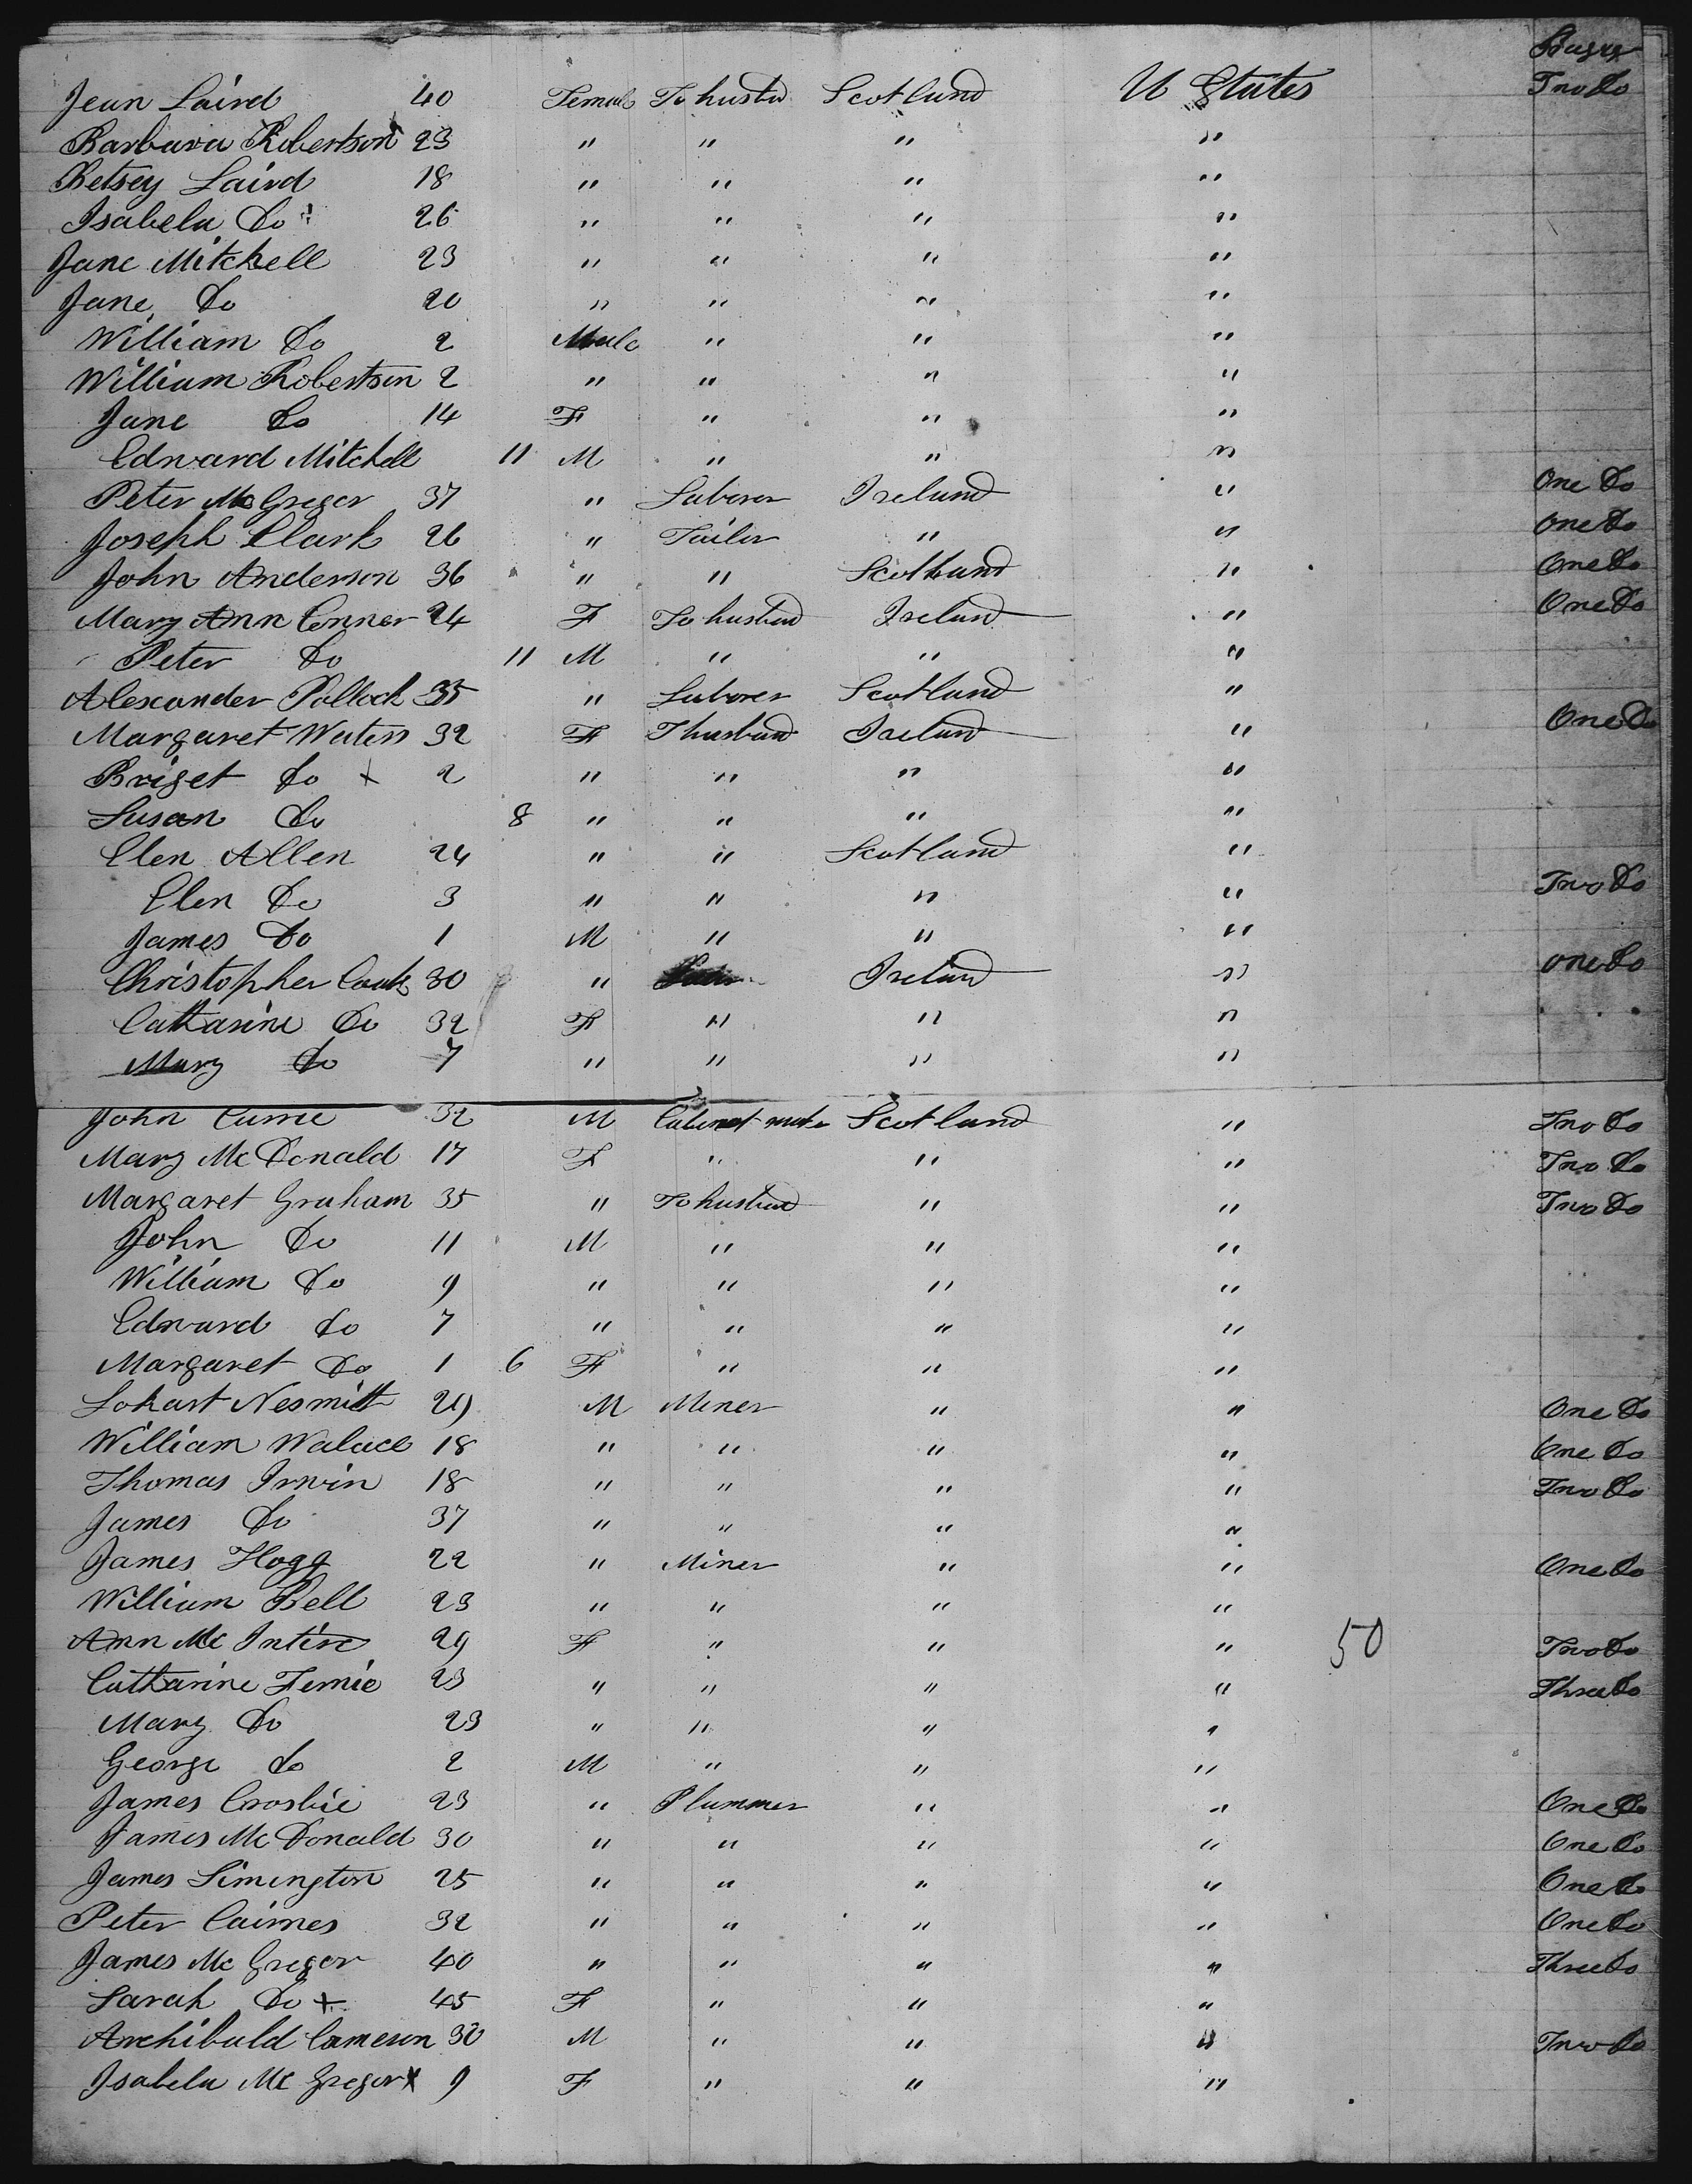 Bagge
Jean Laird 40 Female To husbd Scotland U States Two Do
Barbara Robertson 23 " " " "
Betsey Laird 18 " " " "
Isabela Do 26 " " " "
Jane Mitchell 23 " " " "
Jane Do 20 " " " "
William Do 2 Male " " "
William Robertson 2 " " " "
Jane Do 14 F " " "
Edward Mitchell 11 M " " "
Peter McGregor 37 " Laborer Ireland " One Do
Joseph Clark 26 " Tailor " " One Do
John Anderson 36 " " Scotland " One Do
Mary Ann Conner 24 F To husband Ireland " One Do
Peter Do 11 M " " "
Alexander Pollock 35 " Laborer Scotland "
Margaret Waters 32 F T husband Ireland " One Do
Briget Do x 2 " " " "
Susan Do 8 " " " "
Elen Allen 24 " " Scotland "
Elen Do 3 " " " " Two Do
James Do 1 M " " "
Christopher Cook 30 " Ireland " One Do
Catharine Do 32 F " " "
Mary Do 7 " " " "
John Currie 32 M Cabinet make Scotland " Two Do
Mary McDonald 17 F " " " Two Do
Margaret Graham 35 " To husband " " Two Do
John Do 11 M " " "
William Do 9 " " " "
Edward Do 7 " " " "
Margaret Do 1 6 F " " "
Lokart Nesmitt 29 M Miner " " One Do
William Walace 18 " " " " One Do
Thomas Irwin 18 " " " " Two Do
James Do 37 " " " "
James Hogg 22 " Miner " " One Do
William Bell 23 " " " "
Ann McIntire 29 F " " " 50 Two Do
Catharine Fernie 23 " " " " Three Do
Mary Do 23 " " " "
George Do 2 M " " "
James Crosbie 23 " Plummer " " One Do
James McDonald 30 " " " " One Do
James Simington 25 " " " " One Do
Peter Cairnes 32 " " " " One Do
James McGregor 40 " " " " Three Do
Sarah Do + 45 F " " "
Archibald Cameron 30 M " " " Two Do
Isabela McGregor x 9 F " " "